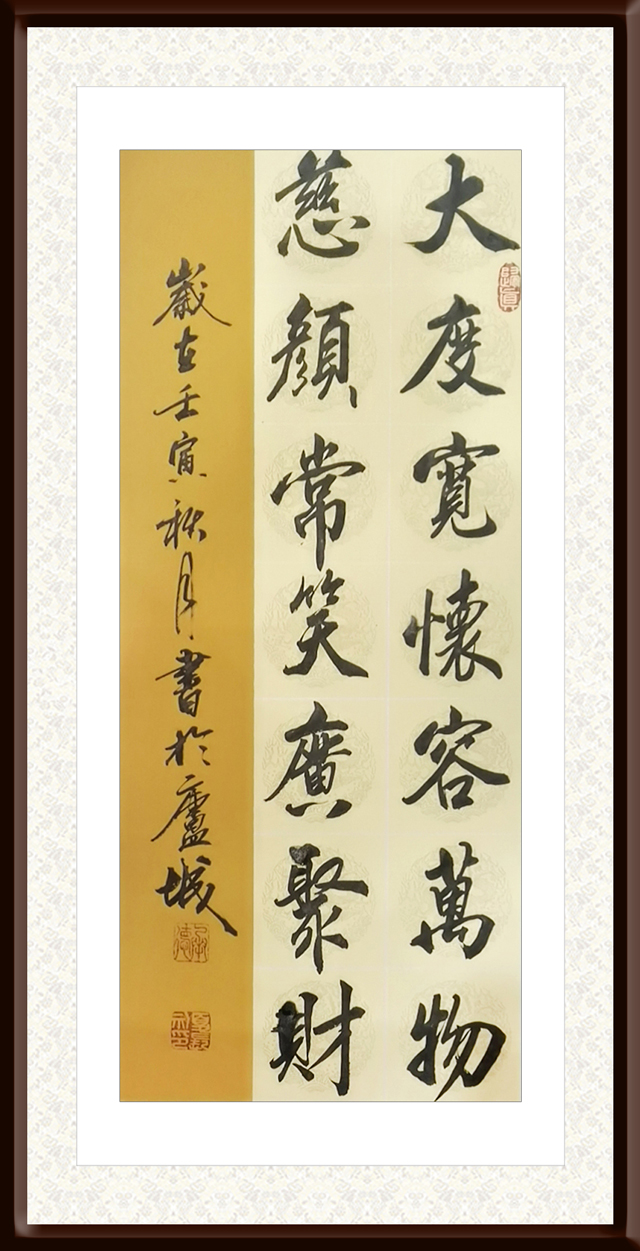 大度寬懷容萬物
慈顏常笑廣聚財
歲在壬寅秋月書於廬城